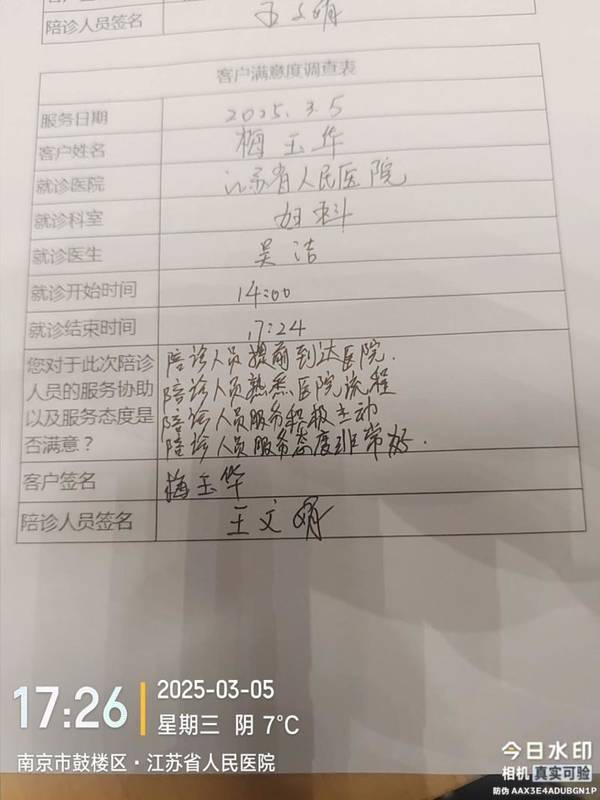 陪诊人员签名 王文明
客户满意度调查表
服务日期 2025.3.5
客户姓名 梅玉华
就诊医院 江苏省人民医院
就诊科室 妇科
就诊医生 吴洁
就诊开始时间 14:00
就诊结束时间 17:24
您对于此次陪诊
人员的服务协助
以及服务态度是
否满意？
陪诊人员提前到达医院.
陪诊人员熟悉医院流程
陪诊人员服务积极主动
陪诊人员服务态度非常好.
客户签名 梅玉华
陪诊人员签名 王文明
17:26
2025-03-05
星期三 阴 7°C
南京市鼓楼区·江苏省人民医院
今日水印
相机 真实可验
防伪 AAX3E4ADUBGN1P